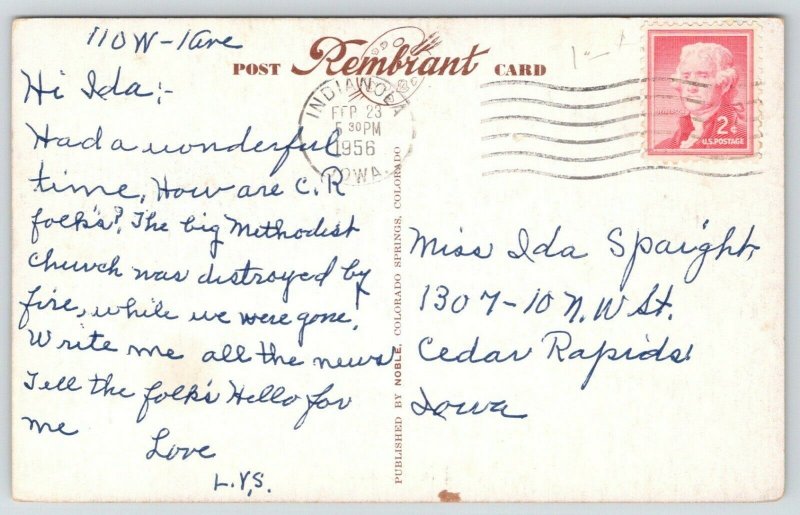 110 W-1 Ave
POST Rembrant CARD
Hi Ida:-
Had a wonderful
time, How are C.R
folk's? The big Methodist
church was distroyed by
fire, while we were gone!
Write me all the news
Tell the folk's Hello for
me
Love
L.V.S.
INDIANOLA
FEB 23
5 30 PM
1956
IOWA
2¢
U.S. POSTAGE
PUBLISHED BY NOBLE, COLORADO SPRINGS, COLORADO
Miss Ida Spaight
1307-10 N.W St.
Cedar Rapids
Iowa